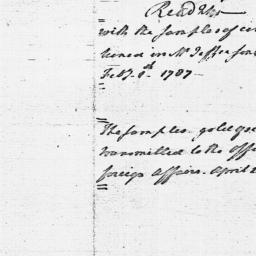 Read
with the samples of
tioned in Mr Jefferson
Feb. 8th 1787
The samples
transmitted to the Offi
foreign Affairs. April